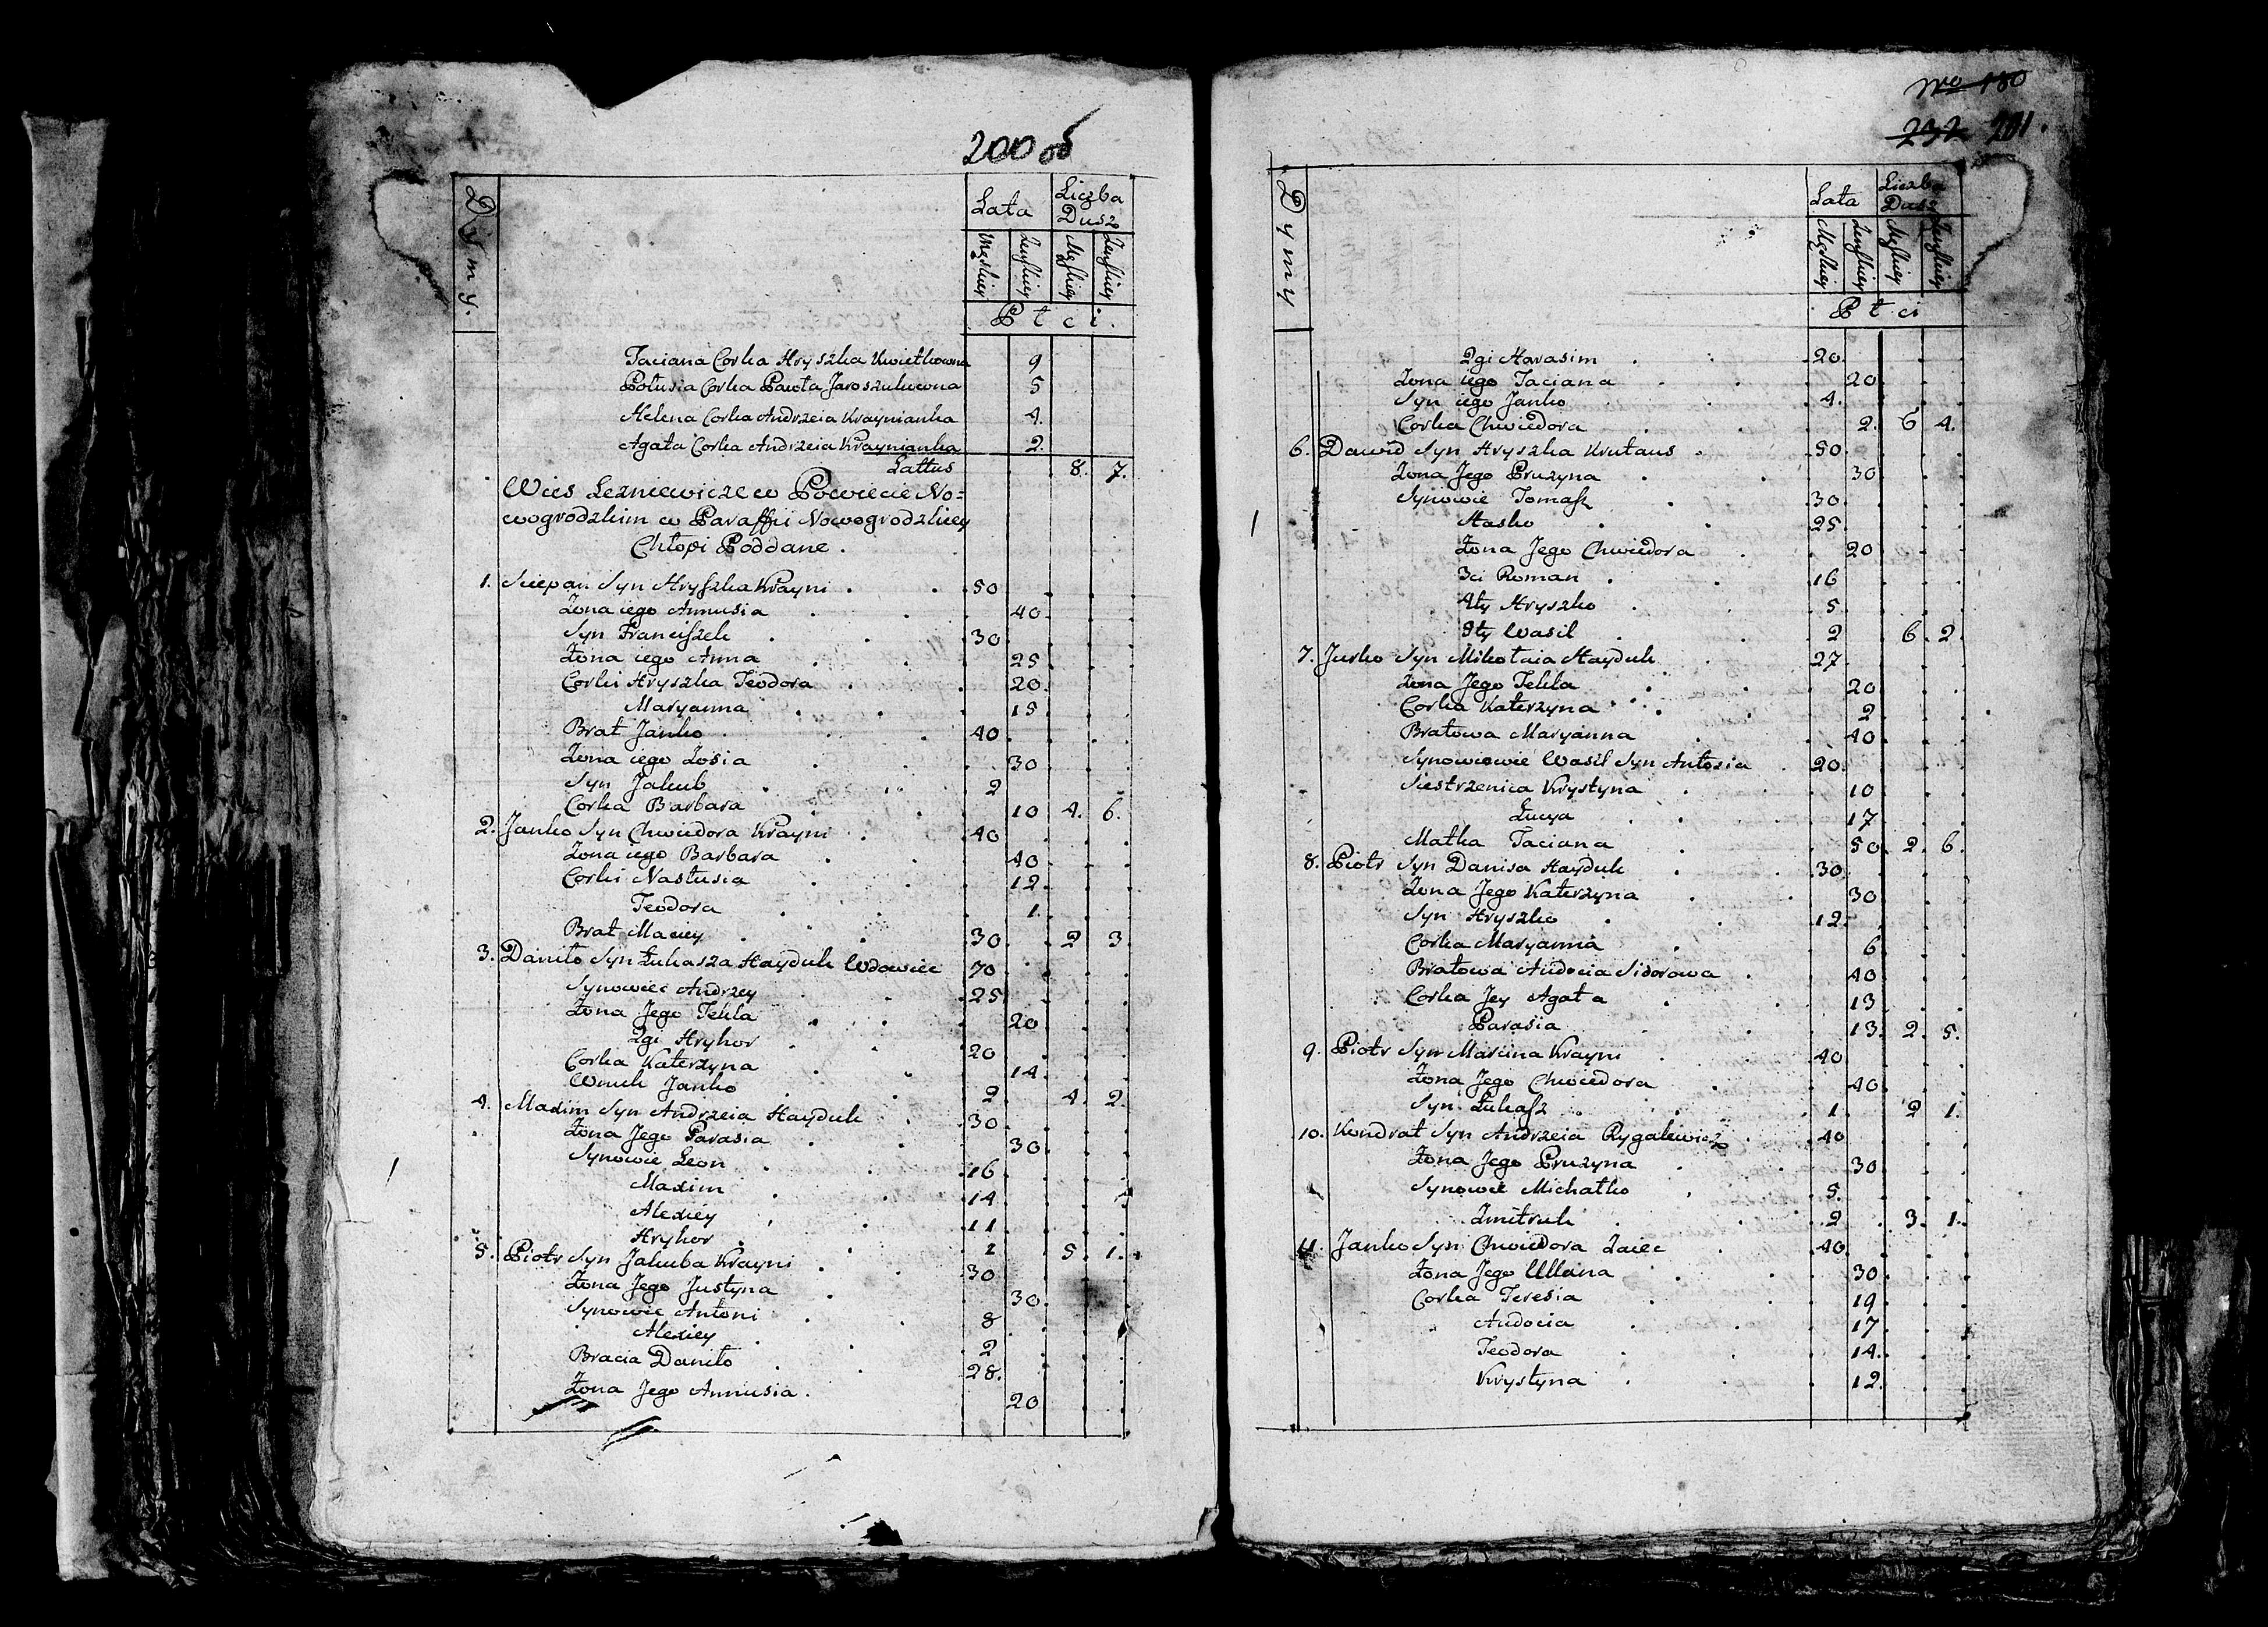 200 об
Dymy.
Lata
Liczba Dusz
Męskiey
Żeńskiey
Męskiey
Żeńskiey
Płci.
Taciana Corka Hryszka Kwietkowna 9
Połusia Corka Pawła Jaroszukowna 5
Helena Corka Andrzeia Kraynianka 4.
Agata Corka Andrzeia Kraynianka 2.
Lattus 8. 7.
Wies Lezniewicze w Powiecie No=
wogrodzkim w Paraffii Nowogrodzkiey
Chłopi Poddane.
1. Sciepan Syn Hryszka Krayni 50
Żona iego Annusia 40
Syn Franciszek 30
Żona iego Anna 25
Corki Hryszka Teodora 20
Maryanna 15
Brat Janko 40
Żona iego Zosia 30
Syn Jakub 2
Corka Barbara 10 4. 6.
2. Janko Syn Chwiedora Krayni 40
Żona iego Barbara 40
Corki Nastusia 12
Teodora 1.
Brat Maciey 30 2 3
3. Daniło Syn Łukasza Hayduk Wdowiec 70
Synowiec Andrzey 25
Żona Jego Tekla 20
2gi Hryhor 20
Corka Katerzyna 14
Wnuk Janko 2 4. 2.
4. Maxim Syn Andrzeia Hayduk 30
Żona Jego Parasia 30
Synowie Leon 16
Maxim 14
Alexiey 11
Hryhor 1 5. 1.
5. Piotr Syn Jakuba Krayni 30
Żona Jego Justyna 30
Synowie Antoni 8
Alexiey 2
Bracia Daniło 28.
Żona Jego Annusia. 20
No 180
232 201.
Dymy
Lata
Liczba Dusz
Męskiey
Żeńskiey
Męskiey
Żeńskiey
Płci
2gi Harasim 20
Żona iego Taciana 20
Syn iego Janko 4.
Corka Chwiedora 2. 6 4.
6. Dawid Syn Hryszka Krutaus 50
Żona Jego Pruzyna 30
Synowie Tomasz 30
Stasko 25
Żona Jego Chwiedora 20
3ci Roman 16
4ty Hryszko 5
5ty Wasil 2 6. 2.
7. Jurko Syn Mikołaia Hayduk 27
Żona Jego Tekla 20
Corka Katerzyna 2
Bratowa Maryanna 40
Synowiowie Wasil Syn Antosia 20
Siestrzenica Krystyna 10
Łucya 17
Matka Taciana 50. 2. 6.
8. Piotr Syn Danisa Hayduk 30
Żona Jego Katerzyna 30
Syn Hryszko 12
Corka Maryanna 6
Bratowa Audocia Sidorowa 40
Corka Jey Agata 13
Parasia 13. 2. 5.
9. Piotr Syn Marcina Krayni 40
Żona Jego Chwiedora 40
Syn Łukasz 1. 2 1.
10. Kondrat Syn Andrzeia Rygalewicz 40
Żona Jego Pruzyna 30
Synowie Michałko 5.
Zmitruk 2 3. 1.
11. Janko Syn Chwiedora Zaiec 40
Żona Jego Ullana 30
Corka Teresia 19
Audocia 17
Teodora 14.
Krystyna 12.